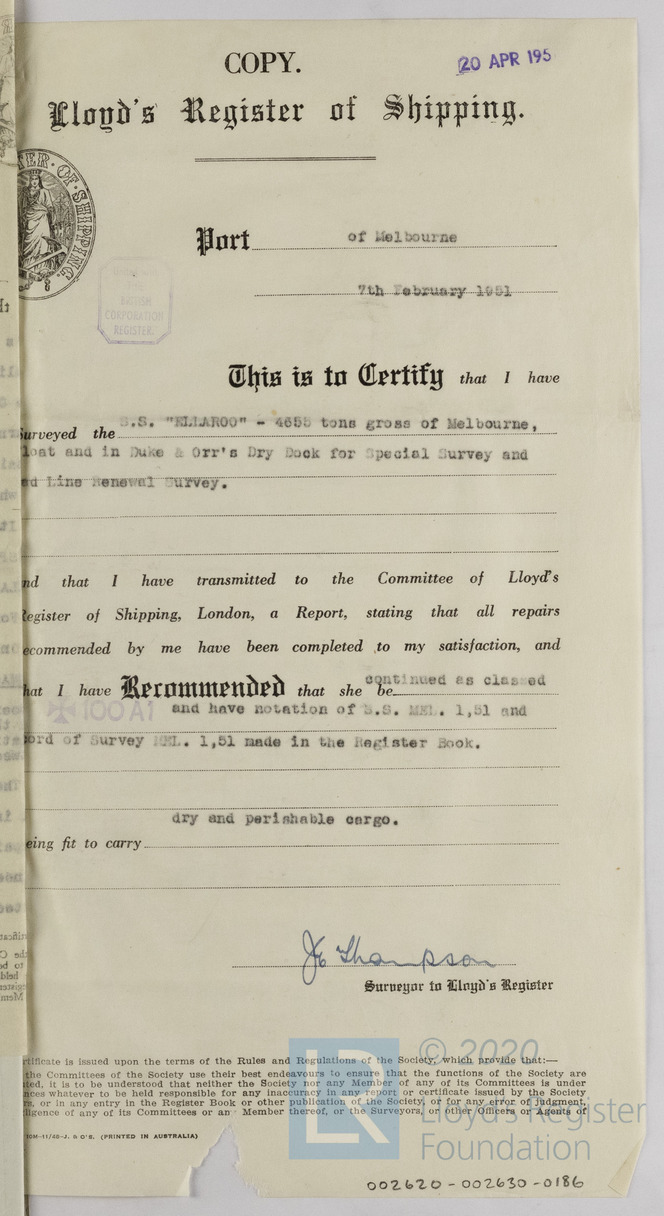 COPY.
20 APR 195
Lloyd's Register of Shipping.
TER · OF · SHIPPING.
Port of Melbourne
7th February 1951
BRITISH
CORPORATION
REGISTER.
This is to Certify that I have
Surveyed the S.S. "ELLAROO" - 4655 tons gross of Melbourne,
loat and in Duke & Orr's Dry Dock for Special Survey and
ed Line Renewal Survey.
nd that I have transmitted to the Committee of Lloyd's
Register of Shipping, London, a Report, stating that all repairs
ecommended by me have been completed to my satisfaction, and
hat I have Recommended that she be continued as classed
100A1 and have notation of S.S. MEL. 1,51 and
ord of Survey MEL. 1,51 made in the Register Book.
dry and perishable cargo.
eing fit to carry
J E Thompson
Surveyor to Lloyd's Register
rtificate is issued upon the terms of the Rules and Regulations of the Society, which provide that:—
the Committees of the Society use their best endeavours to ensure that the functions of the Society are
ted, it is to be understood that neither the Society nor any Member of any of its Committees is under
nces whatever to be held responsible for any inaccuracy in any report or certificate issued by the Society
rs, or in any entry in the Register Book or other publication of the Society, or for any error of judgment,
ligence of any of its Committees or an Member thereof, or the Surveyors, or other Officers or Agents of
10M-11/48-J. & O'S. (PRINTED IN AUSTRALIA)
LR
© 2020
Lloyd's Register
Foundation
002620-002630-0186